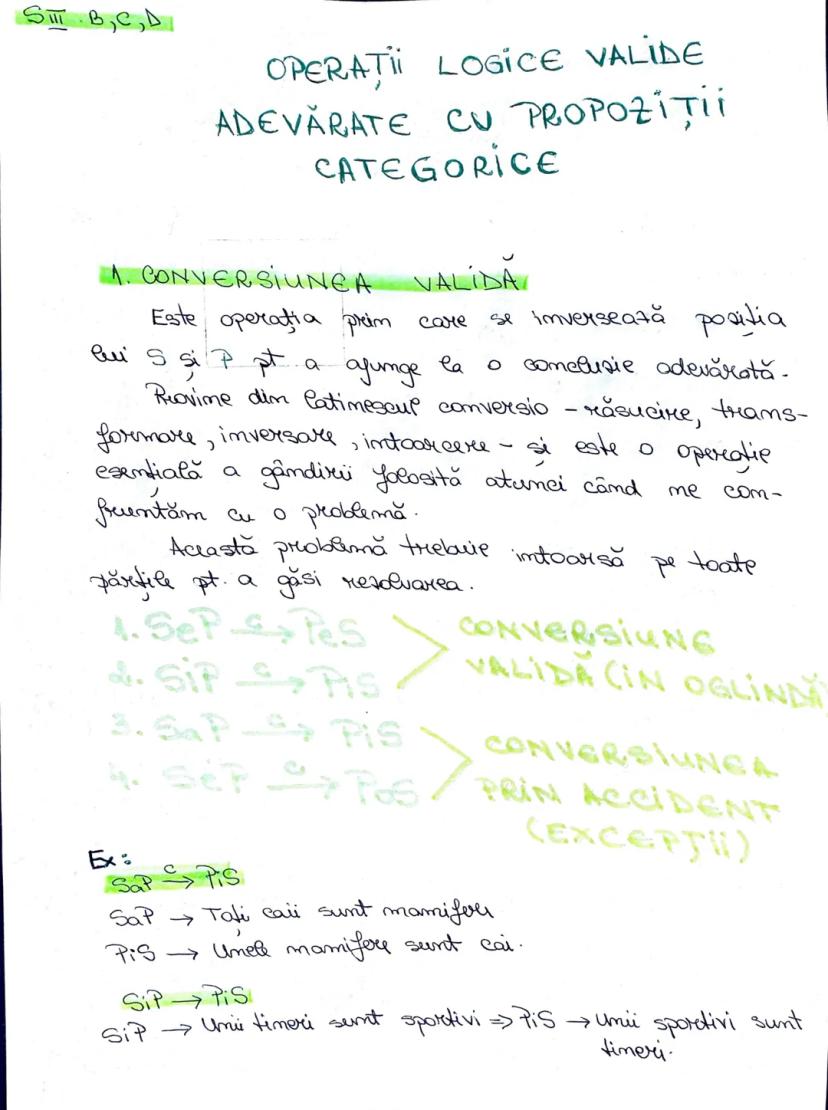 SIII. B,C,D
OPERAȚII LOGICE VALIDE
ADEVĂRATE CU PROPOZIȚII
CATEGORICE
1. CONVERSIUNEA VALIDĂ
Este operația prin care se inversează poziția
lui S și P pt a ajunge la o concluzie adevărată.
Provine din latinescul conversio - răsucire, trans-
formare, inversare, intoarcere - și este o operație
esențială a gândirii folosită atunci când ne con-
fruntăm cu o problemă.
Această problemă trebuie intoarsă pe toate
părțile pt. a găsi rezolvarea.
1. SeP c→ PeS
2. SiP c→ PiS
CONVERSIUNE
VALIDĂ (IN OGLINDĂ
3. SaP c→ PiS
4. SeP c→ PoS
CONVERSIUNEA
PRIN ACCIDENT
(EXCEPȚII)
Ex:
SaP c→ PiS
SaP → Toți caii sunt mamifere
PiS → Unele mamifere sunt cai.
SiP → PiS
SiP → Unii tineri sunt sportivi => PiS → Unii sportivi sunt
tineri.